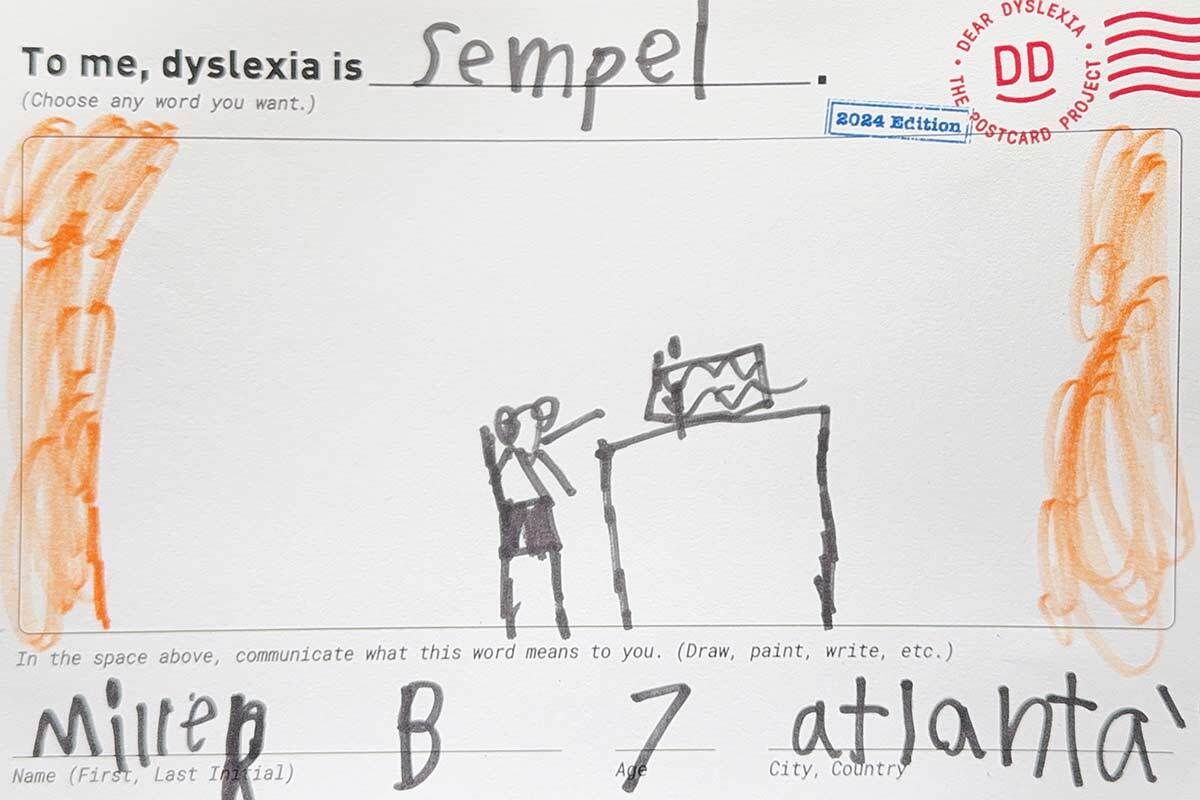 To me, dyslexia is sempel.
(Choose any word you want.)
DEAR DYSLEXIA • THE POSTCARD PROJECT •
DD
2024 Edition
In the space above, communicate what this word means to you. (Draw, paint, write, etc.)
Miller B 7 atlanta
Name (First, Last Initial) Age City, Country